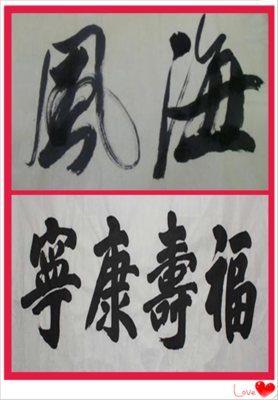 海風
福壽康寧
Love